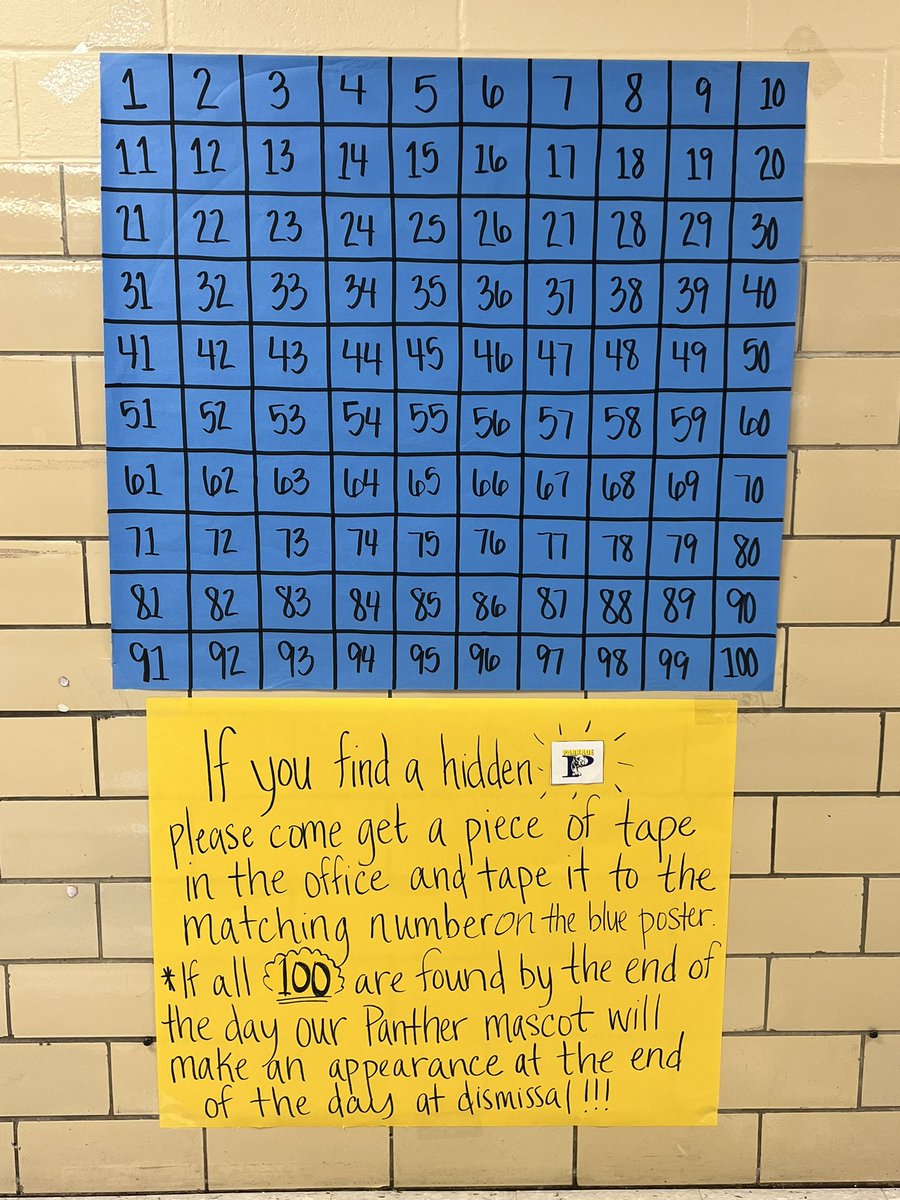 1 2 3 4 5 6 7 8 9 10
11 12 13 14 15 16 17 18 19 20
21 22 23 24 25 26 27 28 29 30
31 32 33 34 35 36 37 38 39 40
41 42 43 44 45 46 47 48 49 50
51 52 53 54 55 56 57 58 59 60
61 62 63 64 65 66 67 68 69 70
71 72 73 74 75 76 77 78 79 80
81 82 83 84 85 86 87 88 89 90
91 92 93 94 95 96 97 98 99 100
If you find a hidden P
please come get a piece of tape
in the office and tape it to the
matching number on the blue poster.
*If all 100 are found by the end of
the day our Panther mascot will
make an appearance at the end
of the day at dismissal!!!